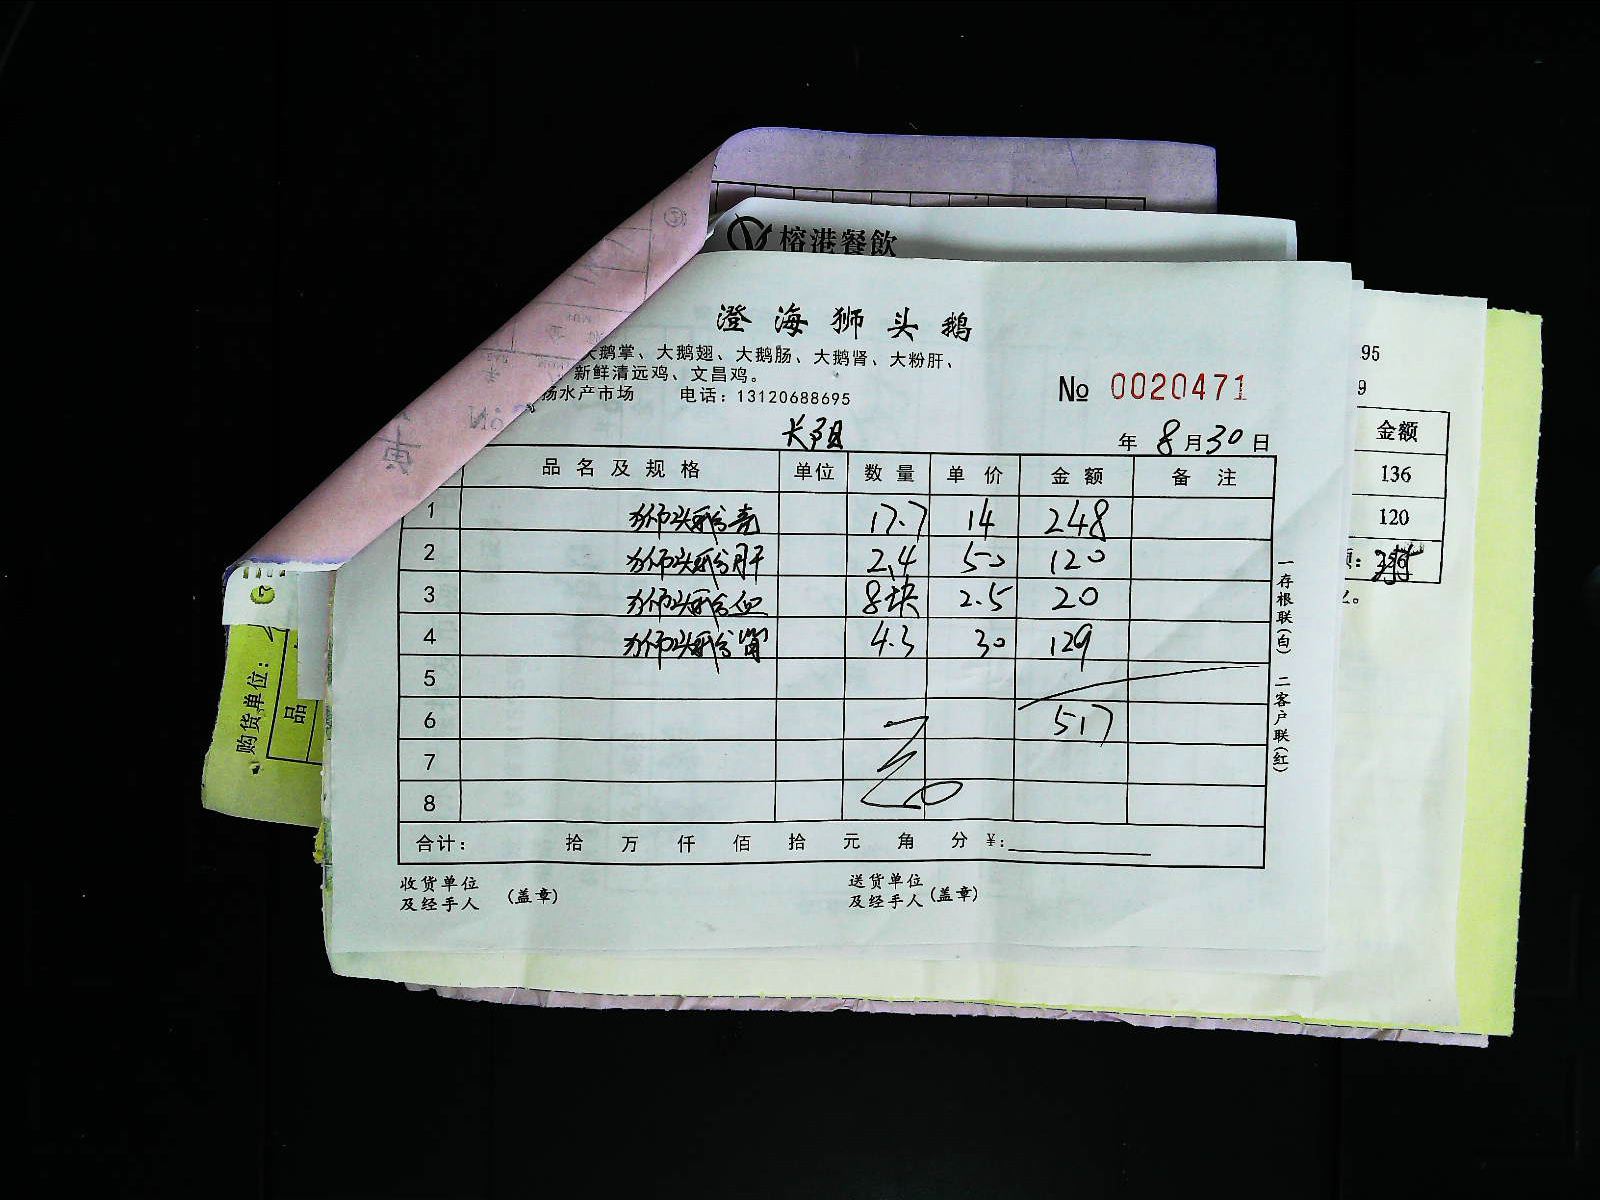 榕港餐飲
澄海狮头鹅
大鹅掌、大鹅翅、大鹅肠、大鹅肾、大粉肝、
新鲜清远鸡、文昌鸡。
扬水产市场 电话：13120688695
№ 0020471
长阳
年 8月30日
品名及规格 单位 数量 单价 金额 备注
1 狮头鹅壳 17.7 14 248
2 狮头鹅肝 2.4 50 120
3 狮头鹅血 8块 2.5 20
4 狮头鹅 4.3 30 129
5
6 517
7
8
合计： 拾 万 仟 佰 拾 元 角 分 ¥:
收货单位
及经手人 (盖章)
送货单位
及经手人 (盖章)
一存根联(白) 二客户联(红)
95
9
金额
136
120
购货单位：
品